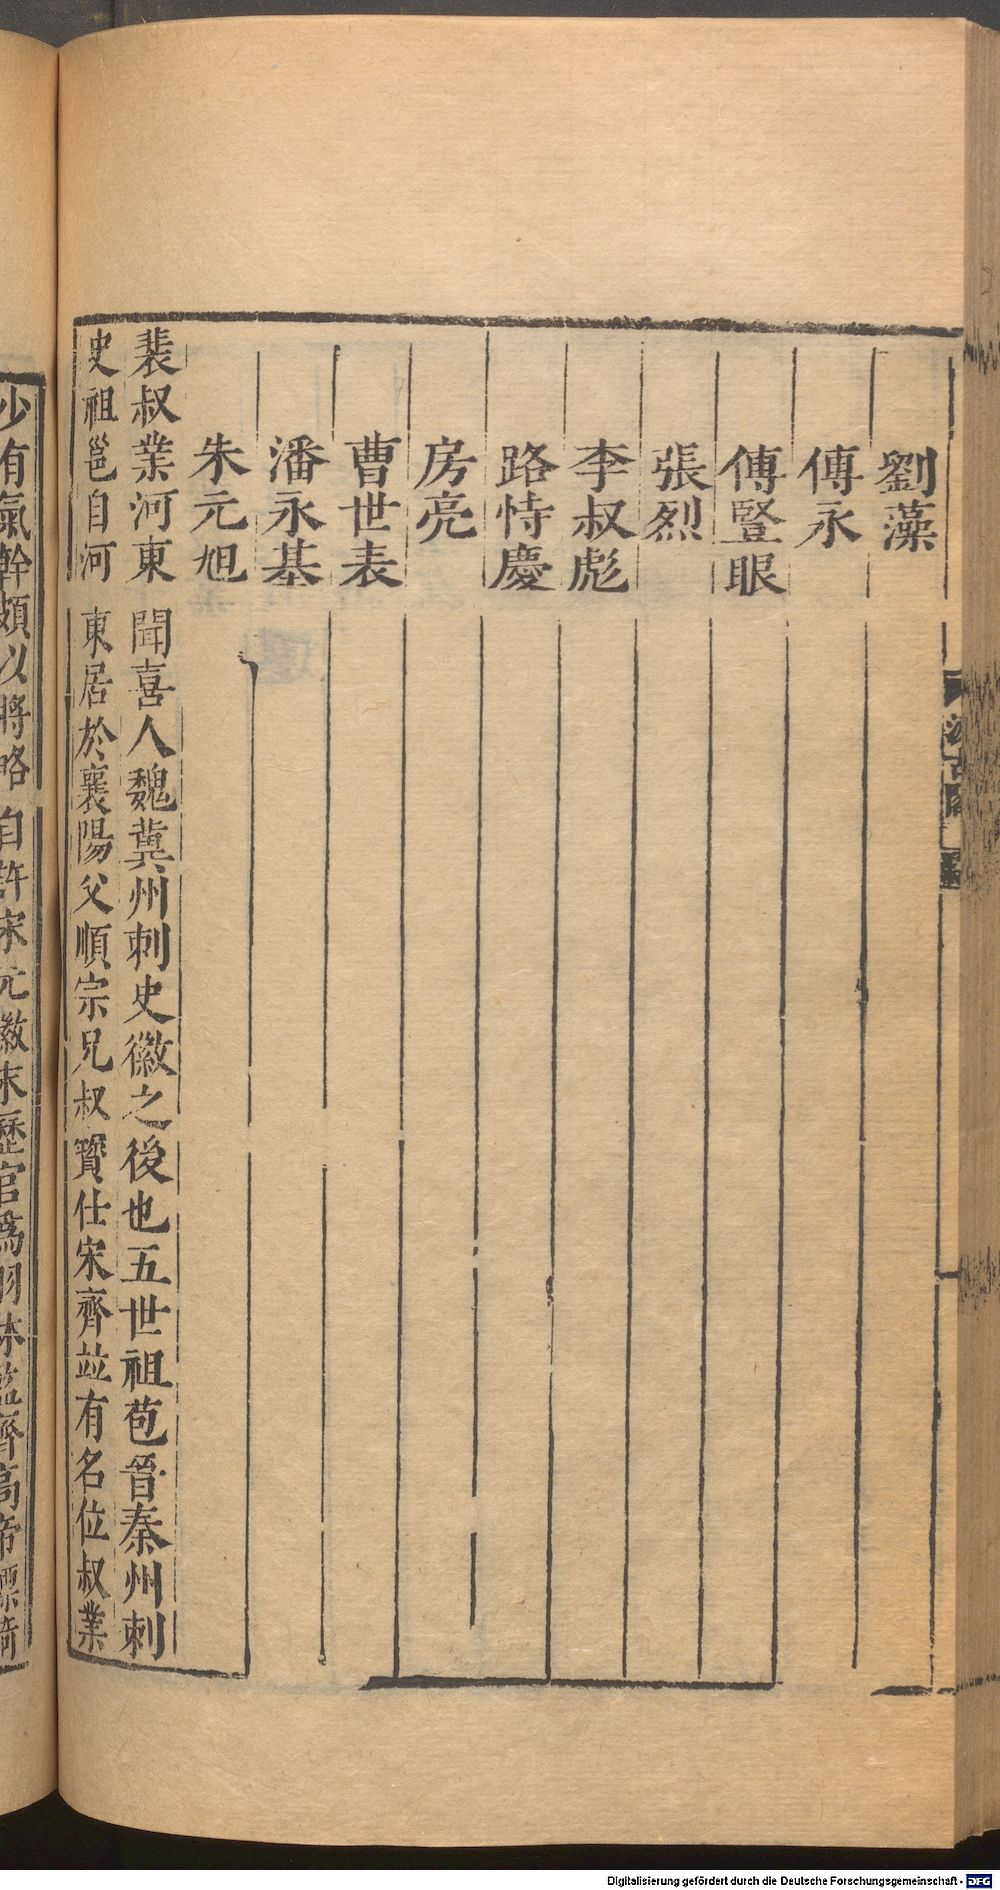 劉藻
傅永
傅豎眼
張烈
李叔彪
路恃慶
房亮
曹世表
潘永基
朱元旭
裴叔業河東聞喜人魏冀州刺史徽之後也五世祖苞晉秦州刺
史祖邕自河東居於襄陽父順宗兄叔寶仕宋齊竝有名位叔業
少有氣幹頗以將略自許宋元徽末歷官爲羽林監齊高帝驃騎
汲古閣
Digitalisierung gefördert durch die Deutsche Forschungsgemeinschaft - DFG